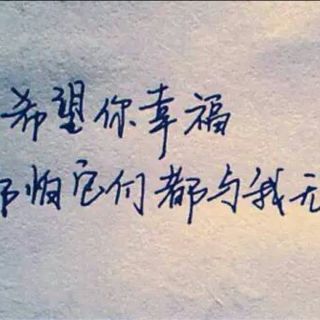 希望你幸福
哪怕它们都与我无